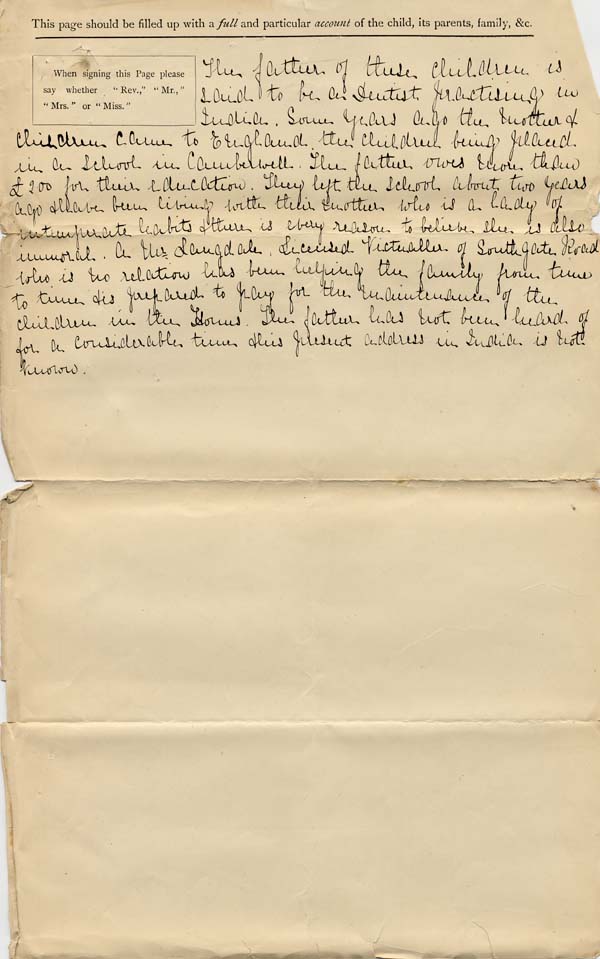 This page should be filled up with a full and particular account of the child, its parents, family, &c.
When signing this Page please
say whether "Rev.," "Mr.,"
"Mrs." or "Miss."
The father of these children is
said to be a Dentist practising in
India. Some years ago the mother &
children came to England, the children being placed
in a School in Camberwell. The father owes more than
£200 for their education. They left the school about two years
ago & have been living with their mother who is a lady of
intemperate habits & there is every reason to believe she is also
immoral. A Mr Langdale, Licensed Victualler of Southgate Road
who is no relation has been helping the family from time
to time & is prepared to pay for the maintenance of the
children in the Homes. The father has not been heard of
for a considerable time & his present address in India is not
known.